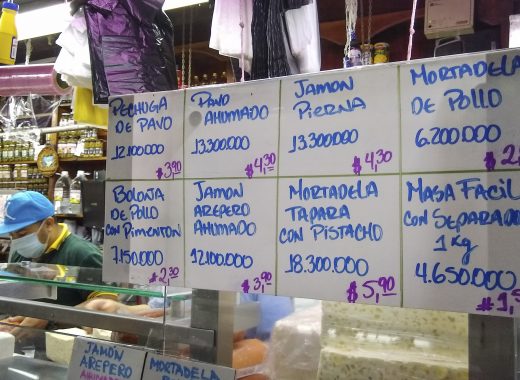 PECHUGA
DE PAVO
12.100.000
$3,90
PAVO
AHUMADO
13.300.000
$4,30
JAMON
PIERNA
13.300.000
$4,30
MORTADELA
DE POLLO
6.200.000
BOLOÑA
DE POLLO
CON PIMENTON
7.150.000
$2,30
JAMON
AREPERO
AHUMADO
12.100.000
$3,90
MORTADELA
TAPARA
CON PISTACHO
18.300.000
$5,90
MASA FACIL
CON SEPARADOR
1 Kg
4.650.000
JAMÓN
AREPERO
MORTADELA